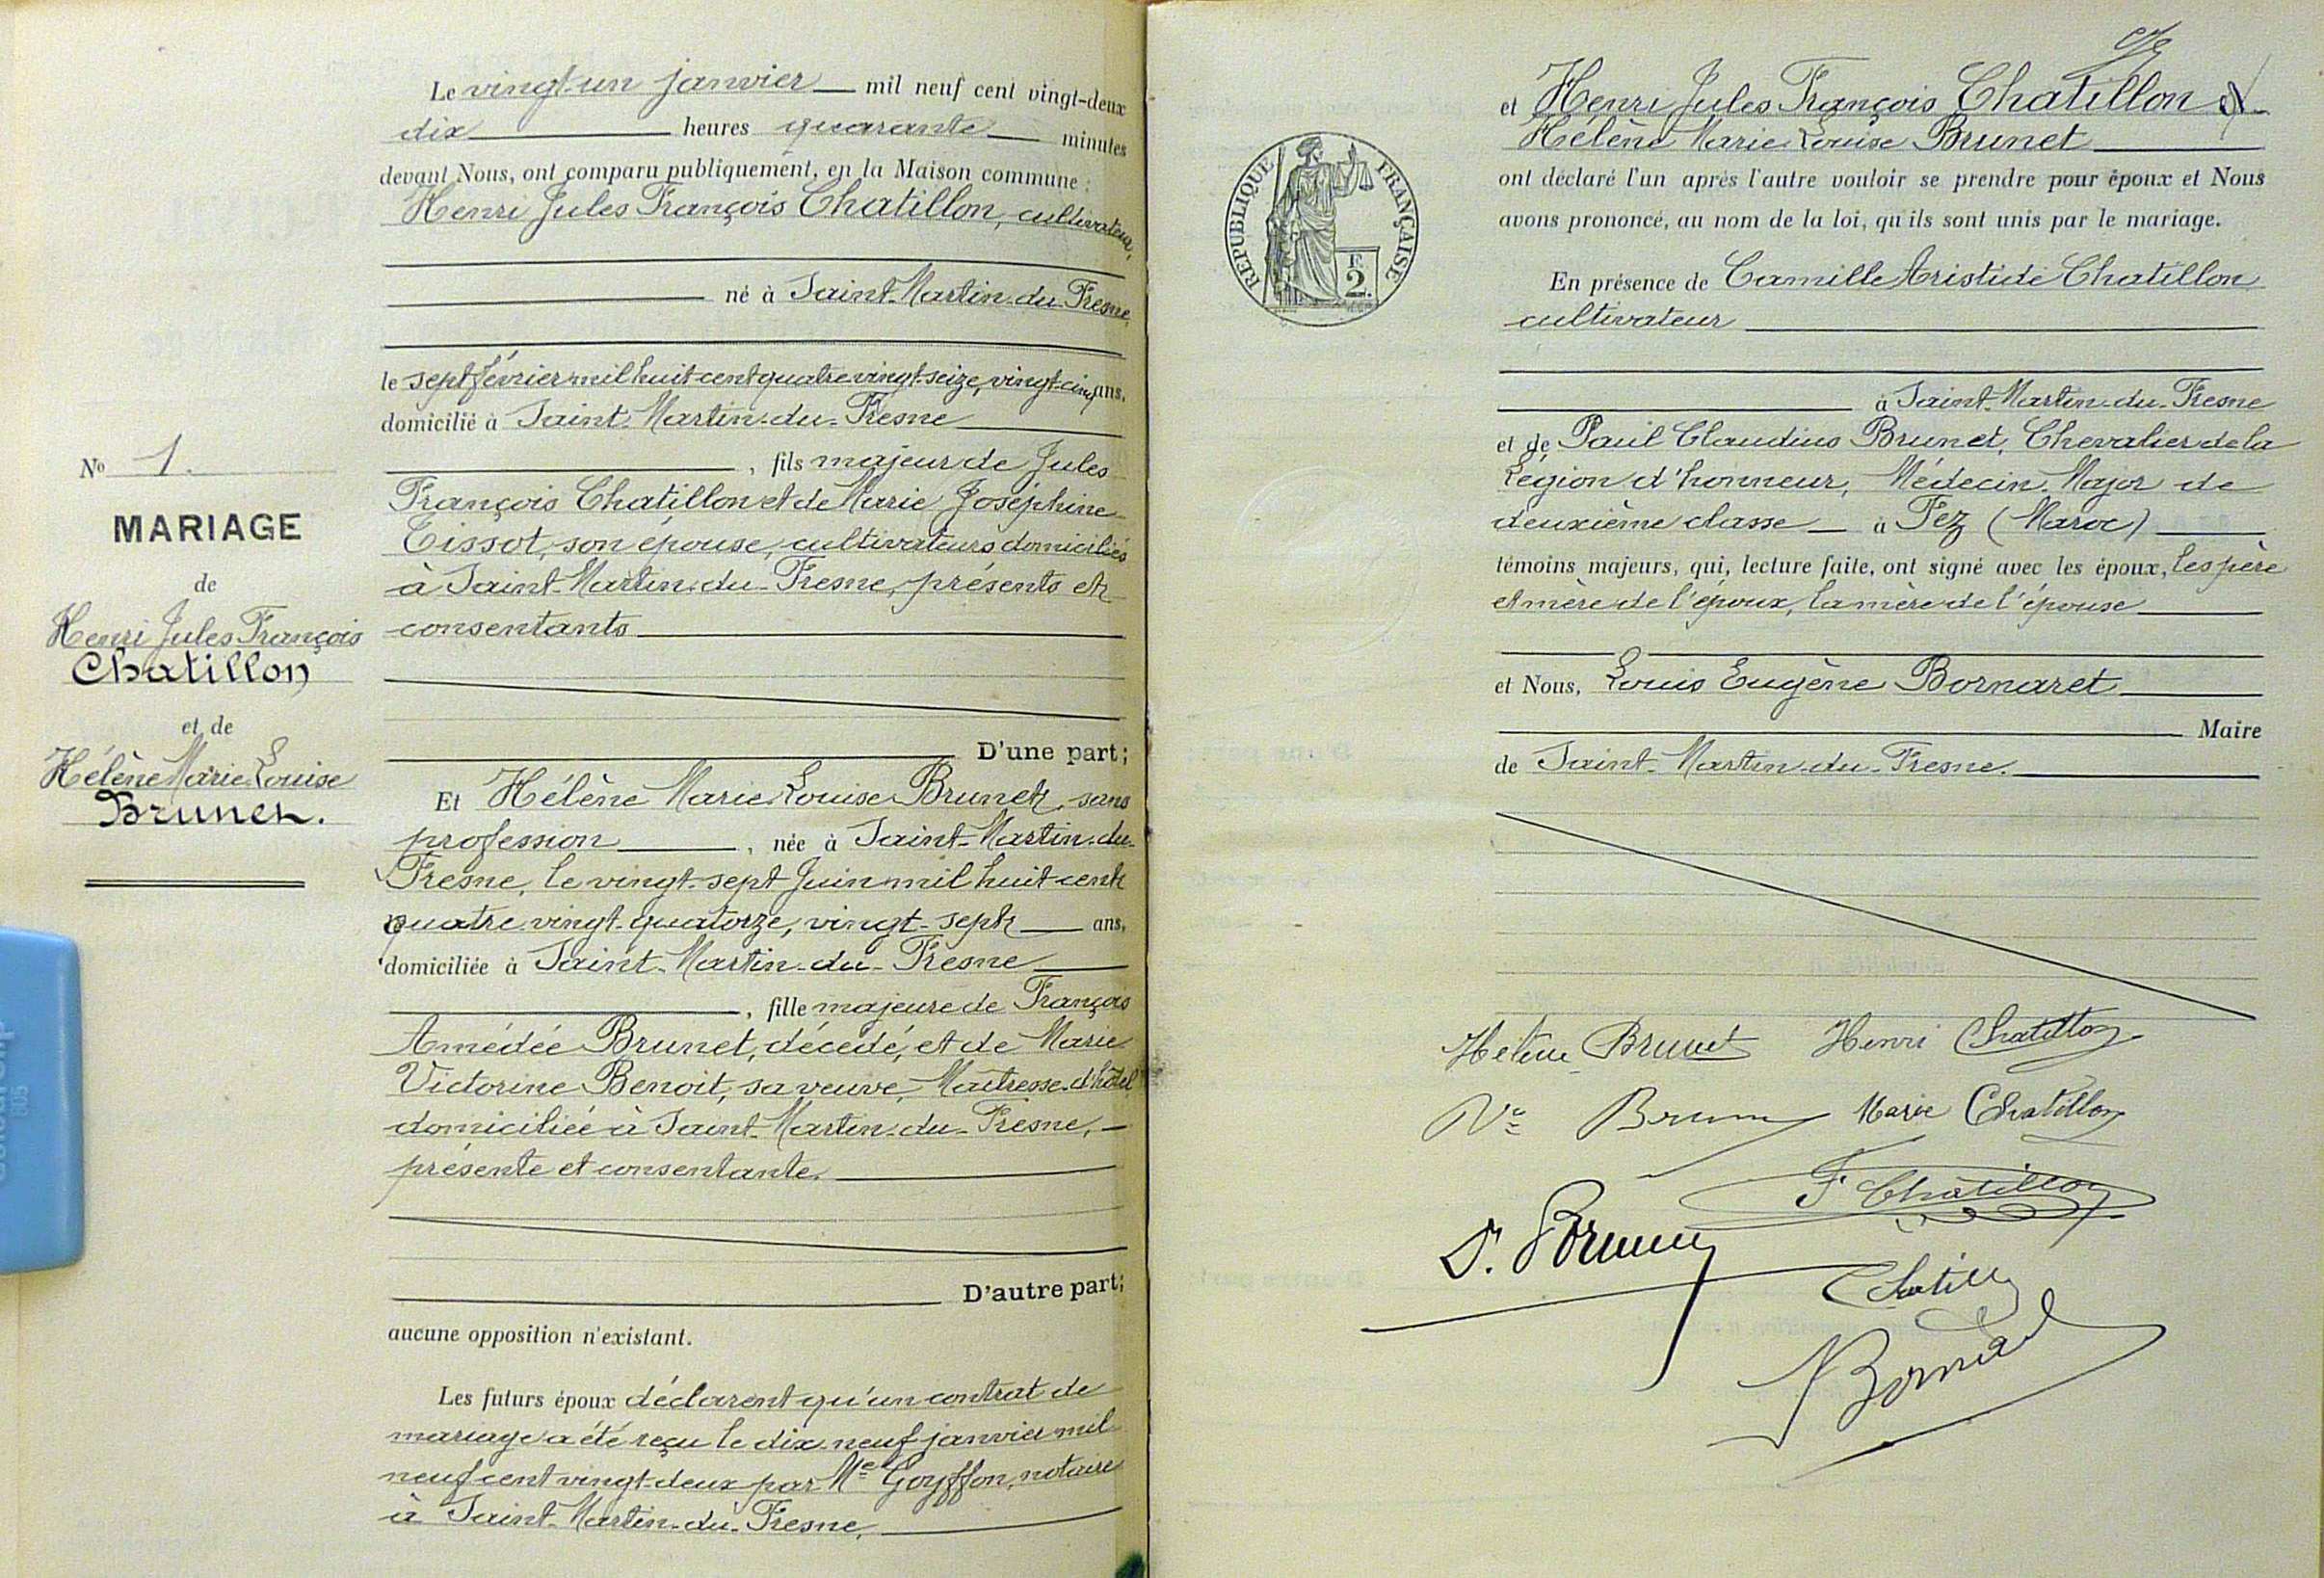 Le vingt-un janvier mil neuf cent vingt-deux
dix heures quarante minutes
devant Nous, ont comparu publiquement, en la Maison commune :
Henri Jules François Chatillon, cultivateur,
né à Saint-Martin-du-Fresne,
le sept février mil huit cent quatre vingt-seize, vingt-cinq ans,
domicilié à Saint-Martin-du-Fresne
, fils majeur de Jules
François Chatillon et de Marie Joséphine
Tissot, son épouse, cultivateurs domiciliés
à Saint-Martin-du-Fresne, présents et
consentants
D'une part;
Et Hélène Marie Louise Brunet, sans
profession, née à Saint-Martin-du-
Fresne, le vingt-sept Juin mil huit cent
quatre vingt-quatorze, vingt-sept ans,
domiciliée à Saint-Martin-du-Fresne
, fille majeure de François
Amédée Brunet, décédé, et de Marie
Victorine Benoit, sa veuve, Maîtresse d'hôtel
domiciliée à Saint-Martin-du-Fresne,
présente et consentante.
D'autre part;
aucune opposition n'existant.
Les futurs époux déclarent qu'un contrat de
mariage a été reçu le dix neuf janvier mil
neuf cent vingt-deux par Me Goyffon, notaire
à Saint-Martin-du-Fresne.
No 1.
MARIAGE
de
Henri Jules François
Chatillon
et de
Hélène Marie Louise
Brunet.
et Henri Jules François Chatillon et
Hélène Marie Louise Brunet
ont déclaré l'un après l'autre vouloir se prendre pour époux et Nous
avons prononcé, au nom de la loi, qu'ils sont unis par le mariage.
En présence de Camille Aristide Chatillon
cultivateur
à Saint-Martin-du-Fresne
et de Paul Claudius Brunet, Chevalier de la
Légion d'honneur, Médecin Major de
deuxième classe à Fez (Maroc)
témoins majeurs, qui, lecture faite, ont signé avec les époux, les père
et mère de l'époux, la mère de l'épouse
et Nous, Louis Eugène Bornaret
Maire
de Saint-Martin-du-Fresne.
RÉPUBLIQUE FRANÇAISE
F.
2.
Hélène Brunet Henri Chatillon
Ve Brunet Marie Chatillon
F Chatillon
P. Brunet
Chatillon